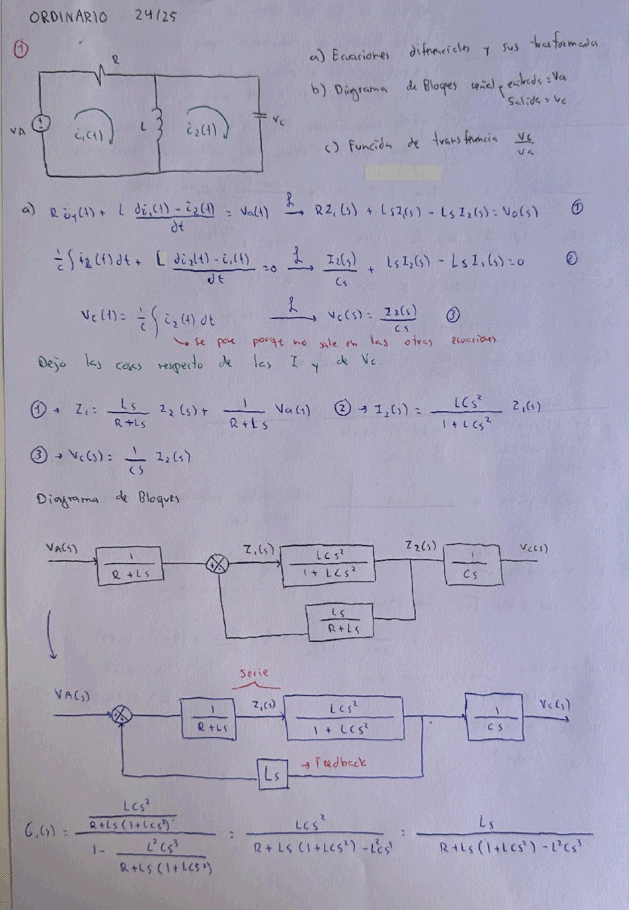 ORDINARIO 24/25
① R L VA i₁(t) i₂(t) Vc
a) Ecuaciones diferenciales y sus trasformada
b) Diagrama de Bloques señal, entrada = Va
Salida = Vc
c) Función de transferencia Vc/Va
a) R i₁(t) + L di₁(t) - i₂(t)/dt = Va(t) ℒ→ R I₁(s) + LsI₁(s) - Ls I₂(s) = Va(s) ①
1/C ∫ i₂(t) dt + L di₂(t) - i₁(t)/dt = 0 ℒ→ I₂(s)/Cs + Ls I₂(s) - Ls I₁(s) = 0 ②
Vc(t) = 1/C ∫ i₂(t) dt ℒ→ Vc(s) = I₂(s)/Cs ③
↳ se pone porque no sale en las otras ecuaciones.
Dejo las cosas respecto de las I y de Vc
① → I₁ = Ls/R+Ls I₂(s) + 1/R+Ls Va(s) ② → I₂(s) = LCs²/1+LCs² I₁(s)
③ → Vc(s) = 1/Cs I₂(s)
Diagrama de Bloques
VA(s) 1/R+Ls I₁(s) LCs²/1+LCs² I₂(s) 1/Cs Vc(s)
Ls/R+Ls
serie
VA(s) 1/R+Ls I₁(s) LCs²/1+LCs² 1/Cs Vc(s)
Ls → Feedback
G₁(s) = LCs²/R+Ls(1+LCs²) / 1 - L²Cs³/R+Ls(1+LCs²) = LCs²/R+Ls(1+LCs²) - L²Cs³ = Ls/R+Ls(1+LCs²) - L²Cs³